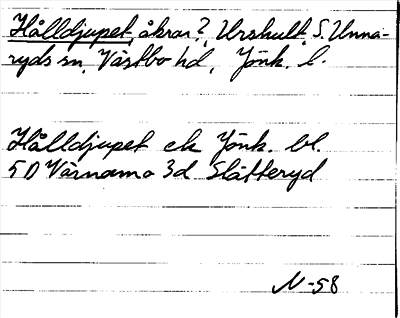 Hålldjupet, åkrar?, Urshult, S. Unna-
ryds sn, Västbo hd, Jönk. l.
Hålldjupet ek Jönk. bl.
5D Värnamo 3d Slätteryd
N-58